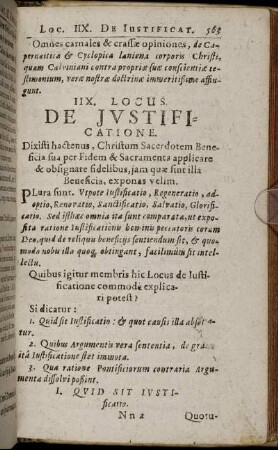 Loc. IIX. De Iustificat. 563
Omnes carnales & crassæ opiniones, de Ca-
pernaitica & Cyclopica laniena corporis Christi,
quam Calviniani contra propriæ suæ conscientiæ te-
stimonium, veræ nostræ doctrinæ immeritissime affin-
gunt.
IIX. LOCUS.
DE JVSTIFI-
CATIONE.
Dixisti hactenus, Christum Sacerdotem Bene-
ficia sua per Fidem & Sacramenta applicare
& obsignare fidelibus, jam quæ sint illa
Beneficia, exponas velim.
PLura sunt. Utpote Iustificatio, Regeneratio, ad-
optio, Renovatio, Sanctificatio, Salvatio, Glorifi-
catio. Sed isthæc omnia ita sunt comparata, ut expo-
sita ratione Iustificationis hominis peccatoris coram
Deo, quid de reliquis beneficijs sentiendum sit, & quo-
modo nobis illa quoq; obtingant, facillimum sit intel-
lectu.
Quibus igitur membris hic Locus de Iusti-
ficatione commodè explica-
ri potest?
Si dicatur:
1. Quid sit Iustificatio: & quot causis illa absolva-
tur.
2. Quibus Argumentis vera sententia, de gra
ità Iustificatione stet immota.
3. Qua ratione Pontificiorum contraria Argu-
menta dissolvi possint.
I. QVID SIT IVSTI-
ficatio.
N n 2 Quotu-